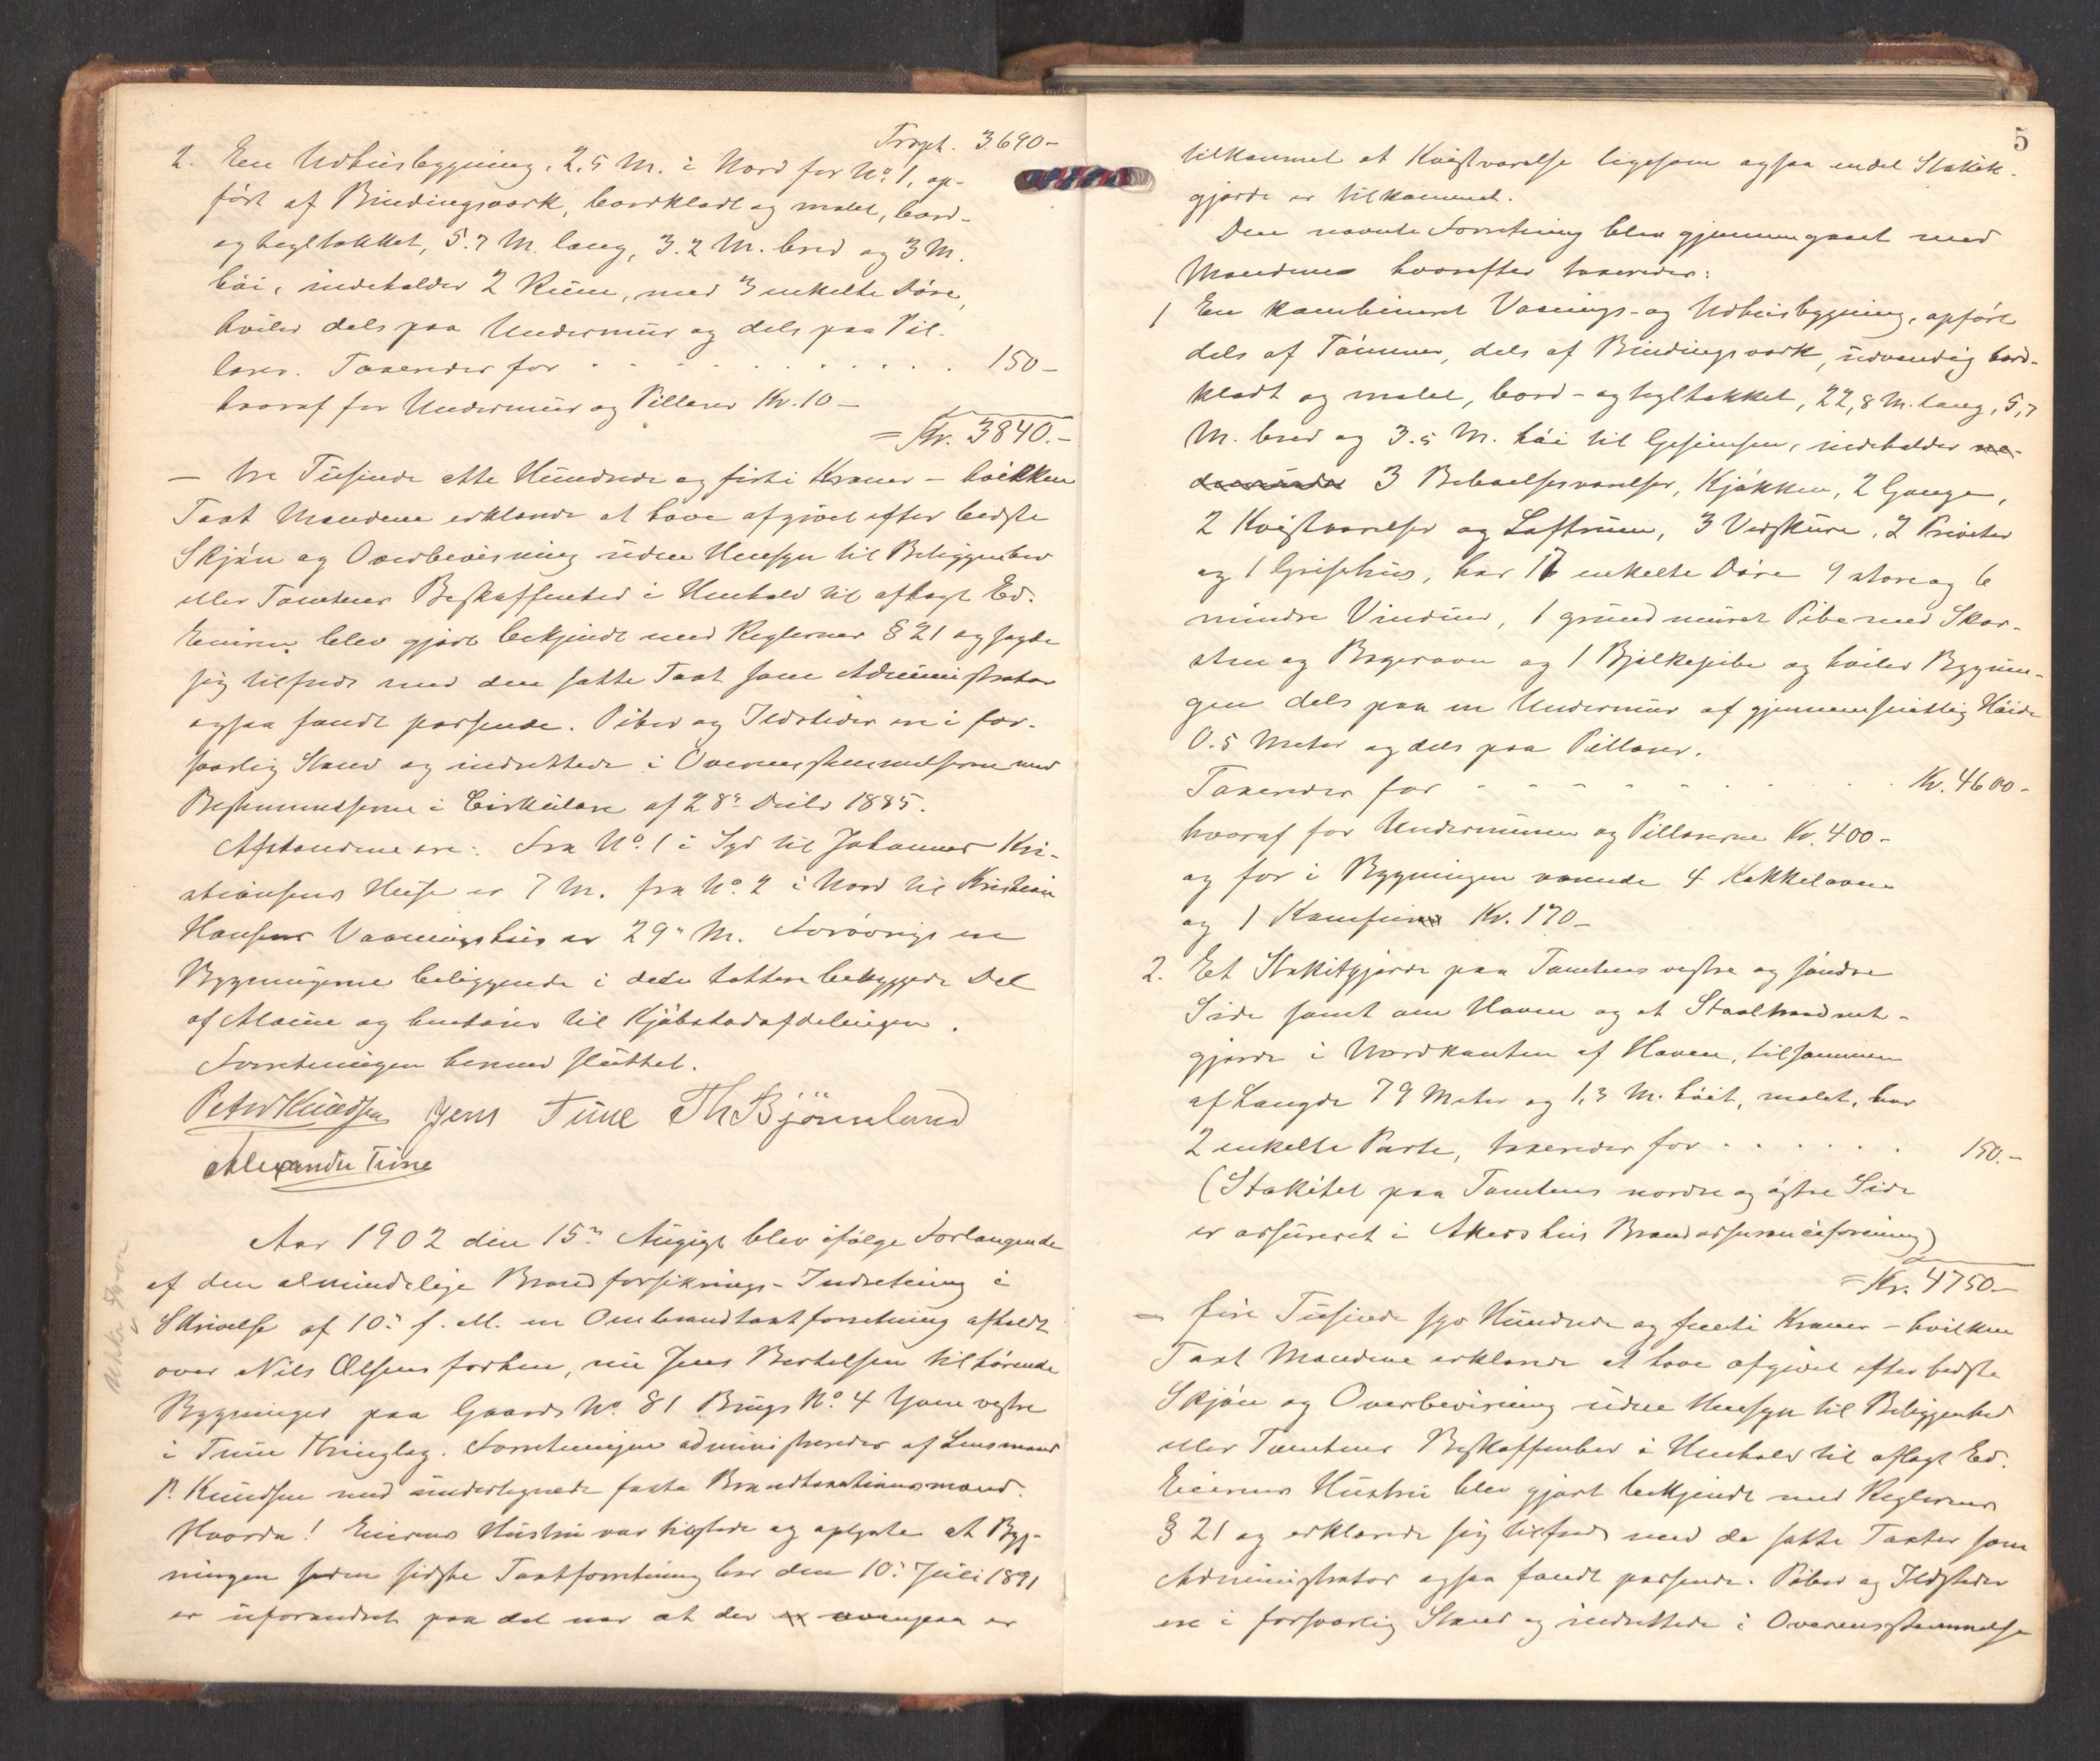 Trspt. 3690-
2. En Udhusbygning, 2,5 M. i Nord for No. 1, op-
ført af Bindingsværk, bordklædt og malet, bord-
og tegltækket, 5.7 M. lang, 3.2 M. bred og 3 M.
høi, indeholder 2 Rum, med 3 enkelte Døre,
hviler dels paa Undermur og dels paa Pil-
larer. Taxeredes for . . . . . . . . . . 150-
hvoraf for Undermur og Pillarer Kr. 10-
= Kr. 3840.-
- tre Tusinde otte Hundrede og firti Kroner - hvilken
Taxt Mændene erklærede at have afgivet efter bedste
Skjøn og Overbevisning uden Hensyn til Beliggenhed
eller Tomtens Beskaffenhed i Henhold til aflagt Ed.
Eieren blev gjort bekjendt med Reglernes § 21 og sagde
sig tilfreds med den satte Taxt som Administrator
ogsaa fandt passende. Piber og Ildsteder ere i for-
svarlig Stand og indrettede i Overensstemmelse med
Bestemmelserne i Cirkulære af 28de Decbr 1885.
Afstandene ere: Fra No. 1 i Syd til Johannes Kri-
stiansens Huse er 7 M. fra No. 2 i Nord til Kristian
Hansens Vaaningshus er 29 M. Forøvrigt ere
Bygningerne beliggende i den tættere bebyggede Del
af Moene og henføres til Kjøbstadafdelingen.
Forretningen hermed sluttet.
Peter Knudsen Jens Tune Th Bjørnland
Alexander Tune
Aar 1902 den 15de August blev ifølge Forlangende
af den almindelige Brandforsikrings-Indretning i
Skrivelse af 10de f. M. en Ombrandtaxtforretning afholdt
over Nils Olsens forhen, nu Jens Bertelsen tilhørende
Bygninger paa Gaards No. 81 Brugs No. 4 Yven vestre
i Tune Thinglag. Forretningen administreredes af Lensmand
P. Knudsen med undertegnede faste Brandtaxtationsmænd.
Hvorda! Eierens Hustru var tilstede og oplyste at Byg-
ningen siden sidste Taxtforretning her den 10de Juli 1891
er uforandret paa det nær at der er ovenpaa er
5
tilkommet et Kvistværelse ligesom ogsaa endel Stakit-
gjærde er tilkommet.
Den nævnte Forretning blev gjennemgaaet med
Mændene hvorefter taxeredes:
1 En kombineret Vaanings- og Udhusbygning, opført
dels af Tømmer, dels af Bindingsværk, udvendig bord-
klædt og malet, bord- og tegltækket, 22,8 M. lang, 5,7
M. bred og 3.5 M. høi til Gesimsen, indeholder ne-
denunder 3 Beboelsesværelser, Kjøkken, 2 Gange,
2 Kvistværelser og Loftrum, 3 Vedskure, 2 Priveter
og 1 Grisehus, har 17 enkelte Døre 9 store og 6
mindre Vinduer, 1 grundmuret Pibe med Skor-
sten og Bagerovn og 1 Bjelkepibe og hviler Bygnin-
gen dels paa en Undermur af gjennemsnitlig Høide
0.5 Meter og dels paa Pillarer.
Taxeredes for . . . . . . . . . . Kr. 4600-
hvoraf for Undermuren og Pillarerne Kr. 400-
og for i Bygningen værende 4 Kakkelovne
og 1 Komfur Kr. 170-
2. Et Stakitgjærde paa Tomtens vestre og søndre
Side samt om Haven og et Staaltraadnet-
gjærde i Nordkanten af Haven, tilsammen
af Længde 79 Meter og 1,3 M. høit, malet, har
2 enkelte Porte, taxeredes for . . . . . . 150.-
(Stakitet paa Tomtens nordre og østre Side
er assureret i Akershus Brandassuranceforening)
= Kr. 4750-
- fire Tusinde syv Hundrede og femti Kroner - hvilken
Taxt Mændene erklærede at have afgivet efter bedste
Skjøn og Overbevisning uden Hensyn til Beliggenhed
eller Tomtens Beskaffenhed i Henhold til aflagt Ed.
Eierens Hustru blev gjort bekjendt med Reglernes
§ 21 og erklærede sig tilfreds med de satte Taxter som
Administrator ogsaa fandt passende. Piber og Ildsteder
ere i forsvarlig Stand og indrettede i Overensstemmelse